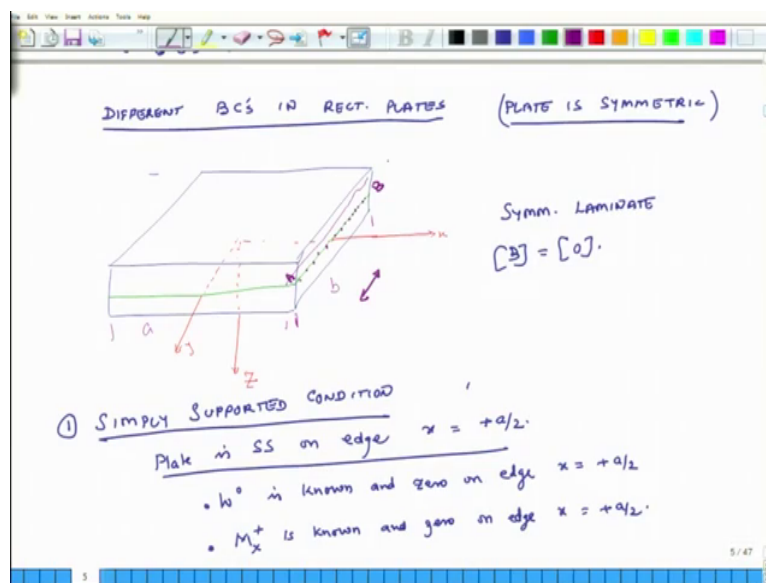 Edit View Insert Actions Tools Help
B I
DIFFERENT BC'S IN RECT. PLATES (PLATE IS SYMMETRIC)
SYMM. LAMINATE
[B] = [0].
A
B
x
b
a
y
Z
① SIMPLY SUPPORTED CONDITION
Plate is SS on edge x = +a/2.
• W° is known and zero on edge x = +a/2
• Mx+ is known and zero on edge x = +a/2.
5/47
5